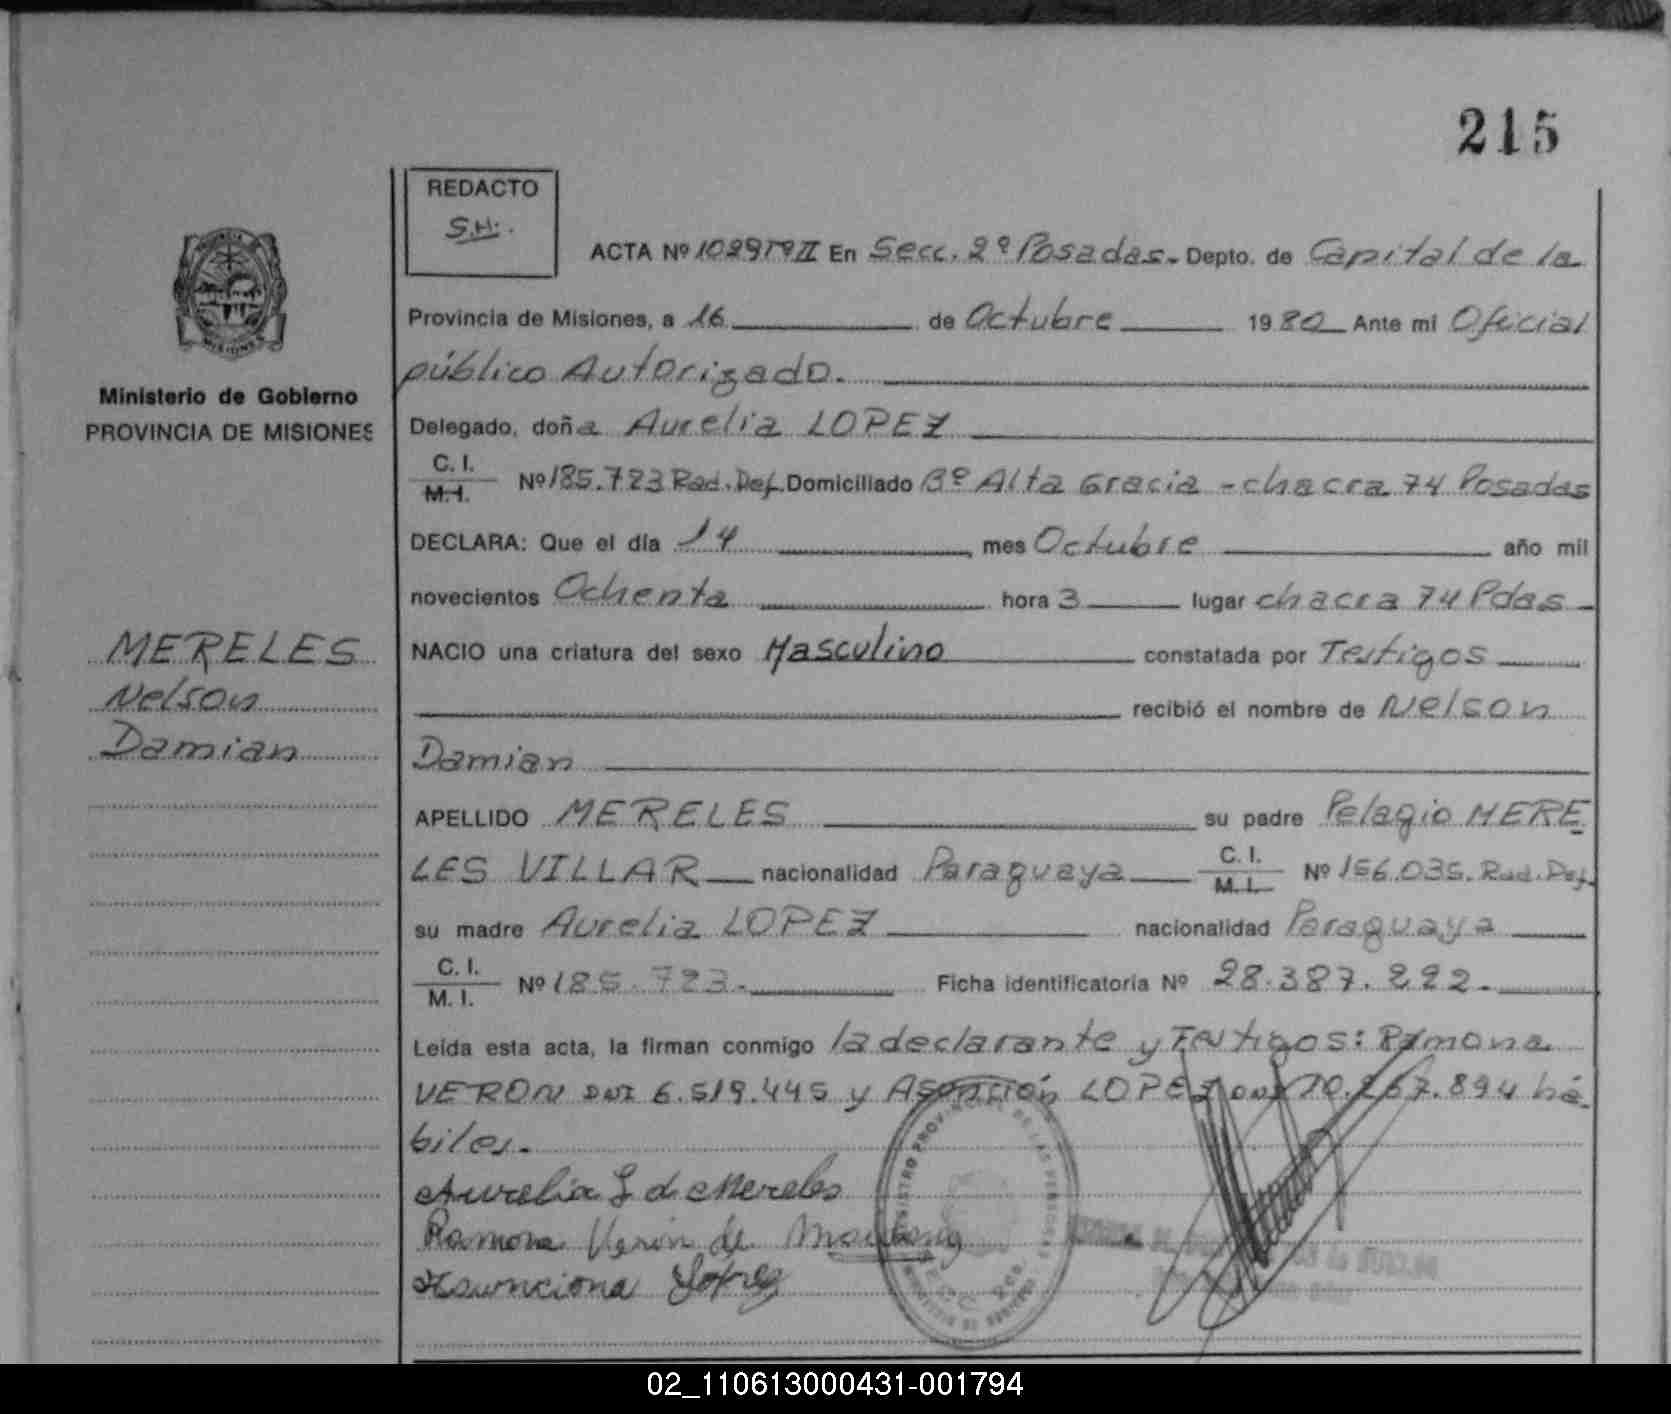 215
REDACTO
S.H.
ACTA Nº 1029TºII En Secc. 2º Posadas. Depto. de Capital de la
Provincia de Misiones, a 16 de Octubre 1980 Ante mi Oficial
público Autorizado.
Ministerio de Gobierno
PROVINCIA DE MISIONES
Delegado, doña Aurelia LOPEZ
C. I.
M. I. Nº 185.723 Rad. Def. Domiciliado Bº Alta Gracia - chacra 74 Posadas
DECLARA: Que el día 14 mes Octubre año mil
novecientos Ochenta hora 3 lugar chacra 74 Pdas
MERELES
Nelson
Damian
NACIO una criatura del sexo Masculino constatada por Testigos
recibió el nombre de Nelson
Damian
APELLIDO MERELES su padre Pelagio MERE
LES VILLAR nacionalidad Paraguaya C. I.
M. I. Nº 156.035. Rad. Def.
su madre Aurelia LOPEZ nacionalidad Paraguaya
C. I.
M. I. Nº 185.723. Ficha identificatoria Nº 28.387.222.
Leída esta acta, la firman conmigo la declarante y Testigos: Ramona
VERON DNI 6.519.445 y Asonción LOPEZ DNI 10.267.894 há
biles.
Aurelia L de Mereles
Ramona Verón de
Asunciona Lopez
REGISTRO PROVINCIAL DE LAS PERSONAS
02_110613000431-001794